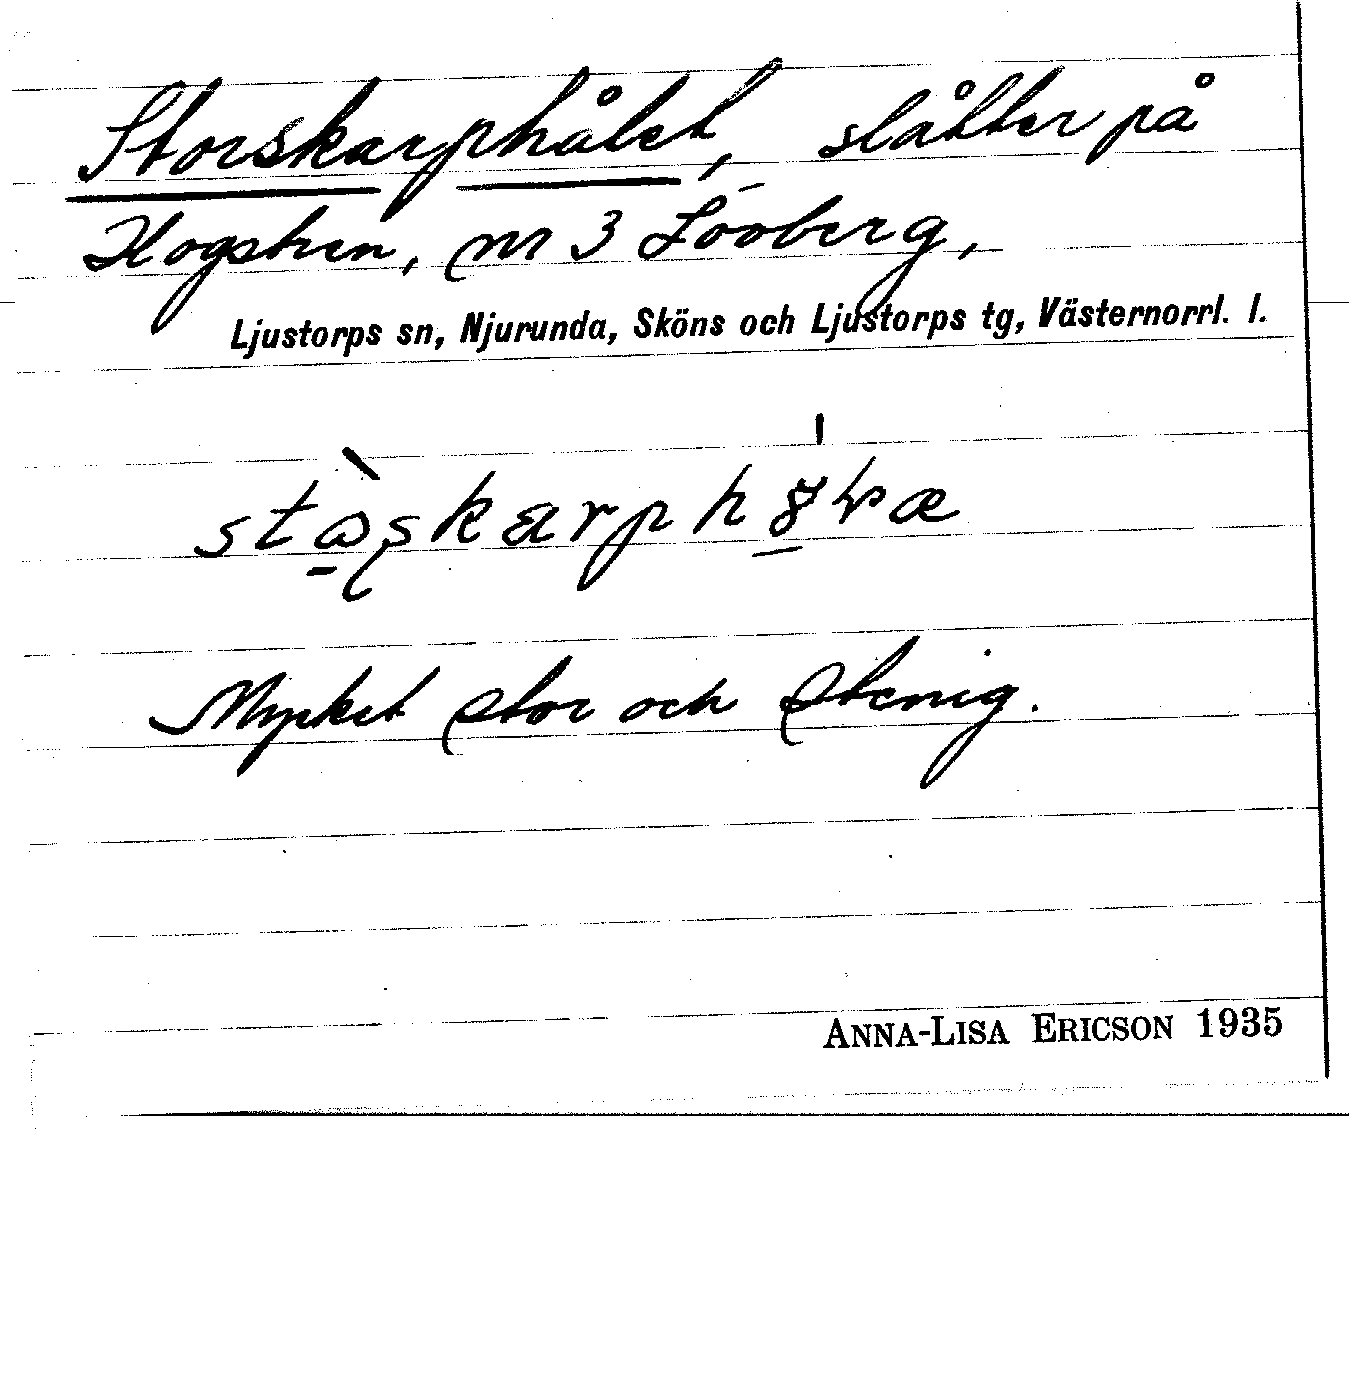 Storskarphålet, slåtter på
Hogstren, nr 3 Lööberg,
Ljustorps sn, Njurunda, Sköns och Ljustorps tg, Västernorrl. l.
Mycket stor och stenig.
ANNA-LISA ERICSON 1935